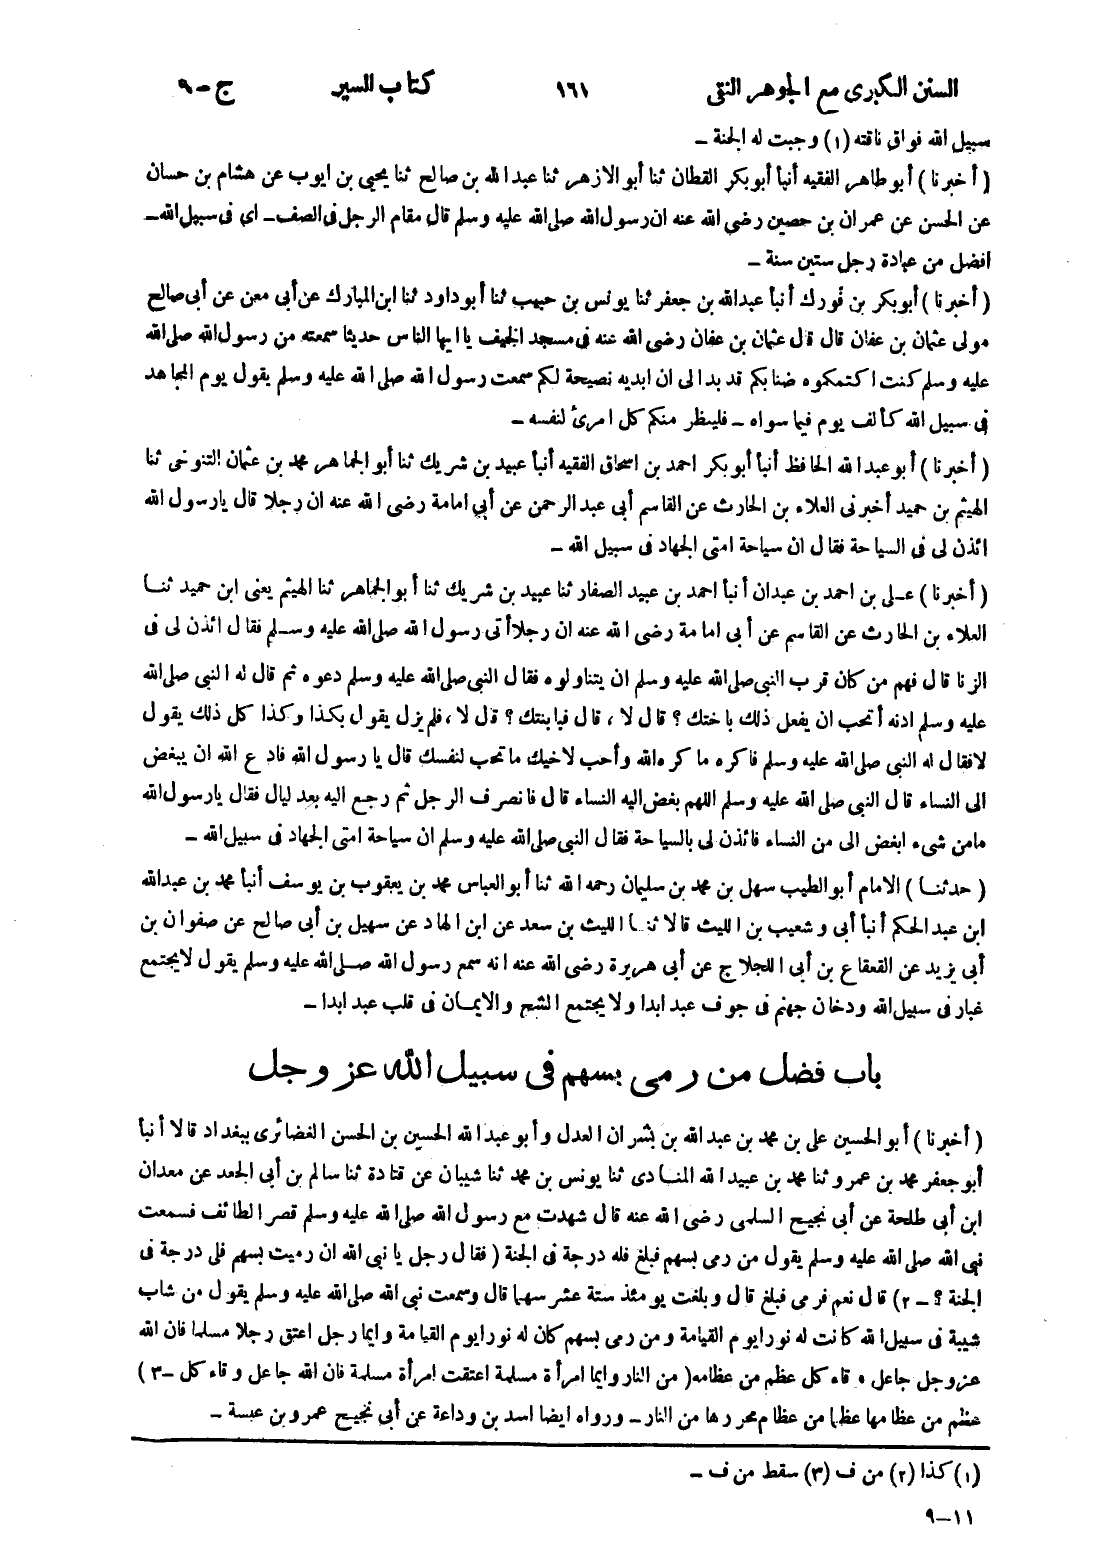 السنن الكبرى مع الجوهر النقى ١٦١ كتاب السير ج - ٩
سبيل الله فواق ناقته (١) وجبت له الجنة ـ
( أخبرنا ) أبو طاهر الفقيه أنبأ أبو بكر القطان ثنا أبو الازهر ثنا عبد الله بن صالح ثنا يحيى بن ايوب عن هشام بن حسان
عن الحسن عن عمران بن حصين رضي الله عنه ان رسول الله صلى الله عليه وسلم قال مقام الرجل فى الصف ـ اى فى سبيل الله ـ
افضل من عبادة رجل ستين سنة ـ
( أخبرنا ) أبو بكر بن فورك أنبأ عبد الله بن جعفر ثنا يونس بن حبيب ثنا أبو داود ثنا ابن المبارك عن أبى معن عن أبى صالح
مولى عثمان بن عفان قال قال عثمان بن عفان رضى الله عنه فى مسجد الخيف يا ايها الناس حديثا سمعته من رسول الله صلى الله
عليه وسلم كنت اكتمكموه ضنا بكم قد بدا لى ان ابديه نصيحة لكم سمعت رسول الله صلى الله عليه وسلم يقول يوم المجاهد
فى سبيل الله كألف يوم فيما سواه ـ فلينظر منكم كل امرئ لنفسه ـ
( أخبرنا ) أبو عبد الله الحافظ أنبأ أبو بكر احمد بن اسحاق الفقيه أنبأ عبيد بن شريك ثنا أبو الجماهر محمد بن عثمان التنوخى ثنا
الهيثم بن حميد أخبرنى العلاء بن الحارث عن القاسم أبى عبد الرحمن عن أبي امامة رضى الله عنه ان رجلا قال يارسول الله
ائذن لى فى السياحة فقال ان سياحة امتى الجهاد فى سبيل الله ـ
( أخبرنا ) على بن احمد بن عبدان أنبأ احمد بن عبيد الصفار ثنا عبيد بن شريك ثنا أبو الجماهر ثنا الهيثم يعنى ابن حميد ثنا
العلاء بن الحارث عن القاسم عن أبى امامة رضى الله عنه ان رجلا أتى رسول الله صلى الله عليه وسلم فقال ائذن لى فى
الزنا قال فهم من كان قرب النبى صلى الله عليه وسلم ان يتناولوه فقال النبى صلى الله عليه وسلم دعوه ثم قال له النبى صلى الله
عليه وسلم ادنه أتحب ان يفعل ذلك باختك ؟ قال لا ، قال فبابنتك ؟ قال لا ، فلم يزل يقول بكذا وكذا كل ذلك يقول
لا فقال له النبى صلى الله عليه وسلم فاكره ما كره الله وأحب لاخيك ما تحب لنفسك قال يا رسول الله فادع الله ان يبغض
الى النساء قال النبى صلى الله عليه وسلم اللهم بغض اليه النساء قال فانصرف الرجل ثم رجع اليه بعد ليال فقال يارسول الله
مامن شىء ابغض الى من النساء فائذن لى بالسياحة فقال النبى صلى الله عليه وسلم ان سياحة امتى الجهاد فى سبيل الله ـ
( حدثنا ) الامام أبو الطيب سهل بن محمد بن سليمان رحمه الله ثنا أبو العباس محمد بن يعقوب بن يوسف أنبأ محمد بن عبدالله
ابن عبد الحكم أنبأ أبى وشعيب بن الليث قالا ثنا الليث بن سعد عن ابن الهاد عن سهيل بن أبى صالح عن صفوان بن
أبى يزيد عن القعقاع بن أبى اللجلاج عن أبى هريرة رضى الله عنه انه سمع رسول الله صلى الله عليه وسلم يقول لا يجتمع
غبار فى سبيل الله ودخان جهنم فى جوف عبد ابدا ولا يجتمع الشح والايمان فى قلب عبد ابدا ـ
باب فضل من رمى بسهم فى سبيل الله عز وجل
( أخبرنا ) أبو الحسين على بن محمد بن عبد الله بن بشران العدل وأبو عبد الله الحسين بن الحسن الغضائرى ببغداد قالا أنبأ
أبو جعفر محمد بن عمرو ثنا محمد بن عبيد الله المنادى ثنا يونس بن محمد ثنا شيبان عن قتادة ثنا سالم بن أبى الجعد عن معدان
ابن أبى طلحة عن أبى نجيح السلمى رضى الله عنه قال شهدت مع رسول الله صلى الله عليه وسلم قصر الطائف فسمعت
نبى الله صلى الله عليه وسلم يقول من رمى بسهم فبلغ فله درجة فى الجنة ( فقال رجل يا نبى الله ان رميت بسهم فلى درجة فى
الجنة ؟ ـ ٢) قال نعم فرمى فبلغ قال وبلغت يومئذ ستة عشر سهما قال وسمعت نبى الله صلى الله عليه وسلم يقول من شاب
شيبة فى سبيل الله كانت له نورا يوم القيامة ومن رمى بسهم كان له نورا يوم القيامة وايما رجل اعتق رجلا مسلما فان الله
عز وجل جاعل وقاء كل عظم من عظامه( من النار وايما امرأة مسلمة اعتقت امرأة مسلمة فان الله جاعل وقاء كل ـ ٣ )
عظم من عظامها عظما من عظام محررها من النار ـ ورواه ايضا اسد بن وداعة عن أبى نجيح عمرو بن عبسة ـ
(١) كذا (٢) من ف (٣) سقط من ف ـ
٩-١١